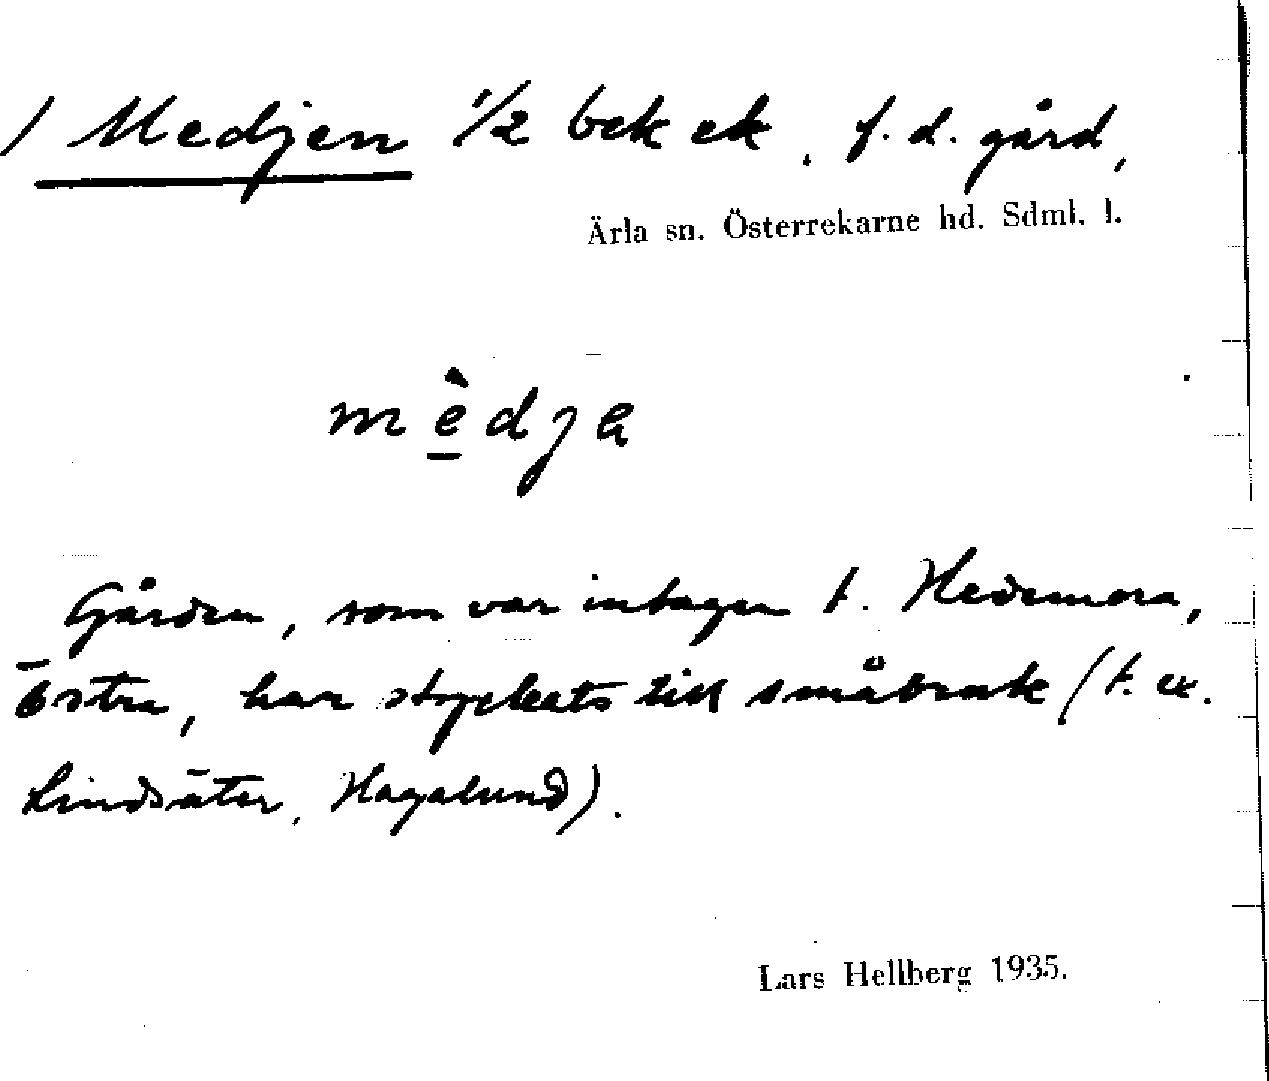 / Medjen 1/2 bek ek, f. d. gård,
Ärla sn. Österrekarne hd. Sdml. l.
mèdja
Gården, som var intagen t. Hedemora,
Östra, har styckats till småbruk (t. ex.
Lindsäter, Hagalund).
Lars Hellberg 1935.